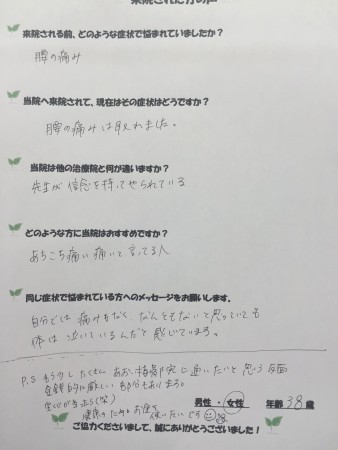 来院された方の声
来院される前、どのような症状で悩まれていましたか？
腰の痛み
当院へ来院されて、現在はその症状はどうですか？
腰の痛みは取れました。
当院は他の治療院と何が違いますか？
先生が信念を持ってやられている
どのような方に当院はおすすめですか？
あちこち痛い痛いと言ってる人
同じ症状で悩まれている方へのメッセージをお願いします．
自分では痛みもなく、なんともないと思っていても
体は泣いているんだと感じています。
P.S もう少したくさん あお 整骨院に通いたいと思う反面
金銭的に厳しい部分もあります。
健康のためにお金を使いたいです
男性・女性 年齢 38 歳
ご協力くださいまして、誠にありがとうございました！